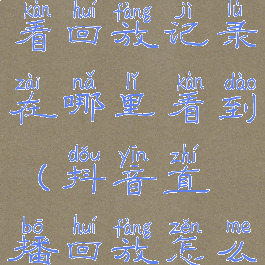 kàn huí fàng jì lù
看回放记录
zài nǎ lǐ kàn dào
在哪里看到
dǒu yīn zhí
（抖音直
bō huí fàng zěn me
播回放怎么